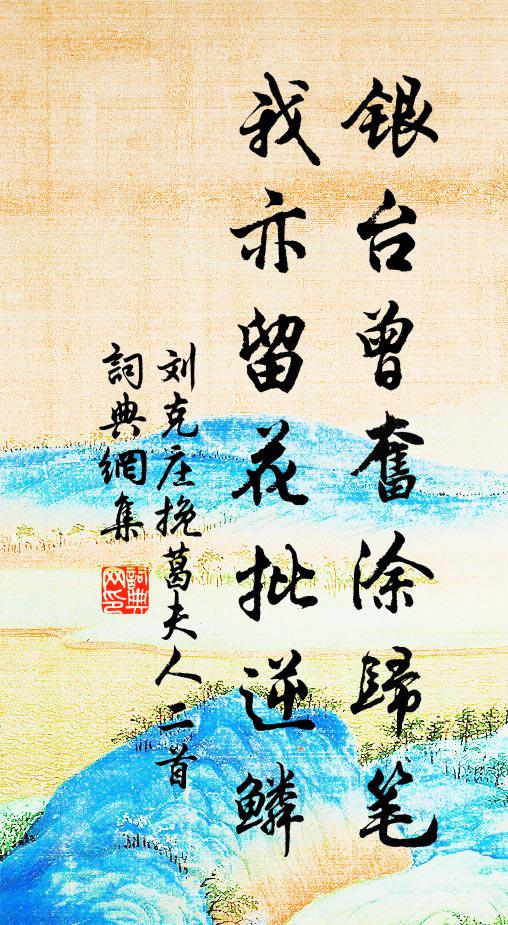 银台曾奮涂歸笔
我亦留花批逆鱗
刘克庄挽葛夫人二首
詞典網集
詞典网印